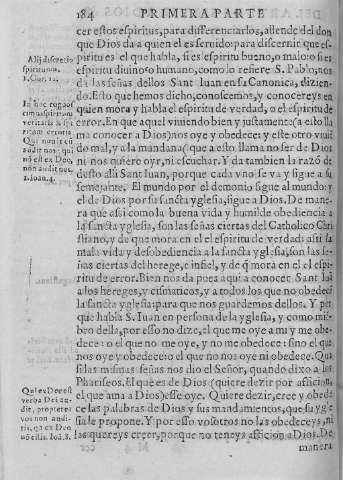 184 PRIMERA PARTE
cer estos espiritus, para differenciarlos, allende del don
que Dios da a quien el es seruido: para discernir que es-
piritu es el que habla, si es espiritu bueno, o malo: o si es
espiritu diuino o humano, como lo refiere S. Pablo, nos
da las señas dellos Sant Iuan en su Canonica, dizien-
do. Esto que hemos dicho, conoscemos, y conocereys en
quien mora y habla el espiritu de verdad, o el espiritu de
error. En que aquel viuiendo bien y justamente (a esto lla
ma conocer a Dios) nos oye y obedece: y este otro viuiẽ
do mal, y a la mundana (que a esto llama no ser de Dios
ni nos quiere oyr, ni escuchar. Y da tambien la razõ de
desto alli Sant Iuan, porque cada vno se va y sigue a su
semejante. El mundo por el demonio sigue al mundo: y
el de Dios por su sancta yglesia, sigue a Dios. De mane-
ra que assi como la buena vida y humilde obediencia a
la sancta yglesia, son las señas ciertas del Catholico Chri
stiano, y de que mora en el el espiritu de verdad: assi la
mala vida y desobediencia a la sancta yglesia, son las se-
ñas ciertas del herege, e infiel, y de q̃ mora en el el espi-
ritu de error. Bien nos da pues aqui a conocer Sant Iuã
a los hereges, y cismaticos, y a todos los que no obedecẽ
la sancta yglesia: para que nos guardemos dellos. Y por
que habla S. Iuan en persona de la yglesia, y como miẽ-
bro della, por esso no dize, el que me oye a mi y me obe-
dece: o el que no me oye, y no me obedece: sino el que
nos oye y obedece: o el que no nos oye ni obedece. Que
silas mismas señas nos dio el Señor, quando dixo a los
Phariseos. El que es de Dios (quiere dezir por afficion,
el que ama a Dios) esse oye. Quiere dezir, cree y obede
ce las palabras de Dios y sus mandamientos, que su ygle
sia le propone. Y por esso vosotros no las obedeceys, ni
las quereys creer, porque no teneys afficion a Dios. De
manera
Alij discretio
spirituum.
1. Cor. 12.
In hoc cognos
cimus spiritum
veritatis & spi
ritum erroris.
Qui nouit
audit nos: qui
nõ est ex Deo
nõn audit nos.
1. Ioan. 4.
Qui ex Deo est
verba Dei au-
dit, propterea
vos non audi-
tis, qa ex Deo
nõ estis. Ioã. 8.